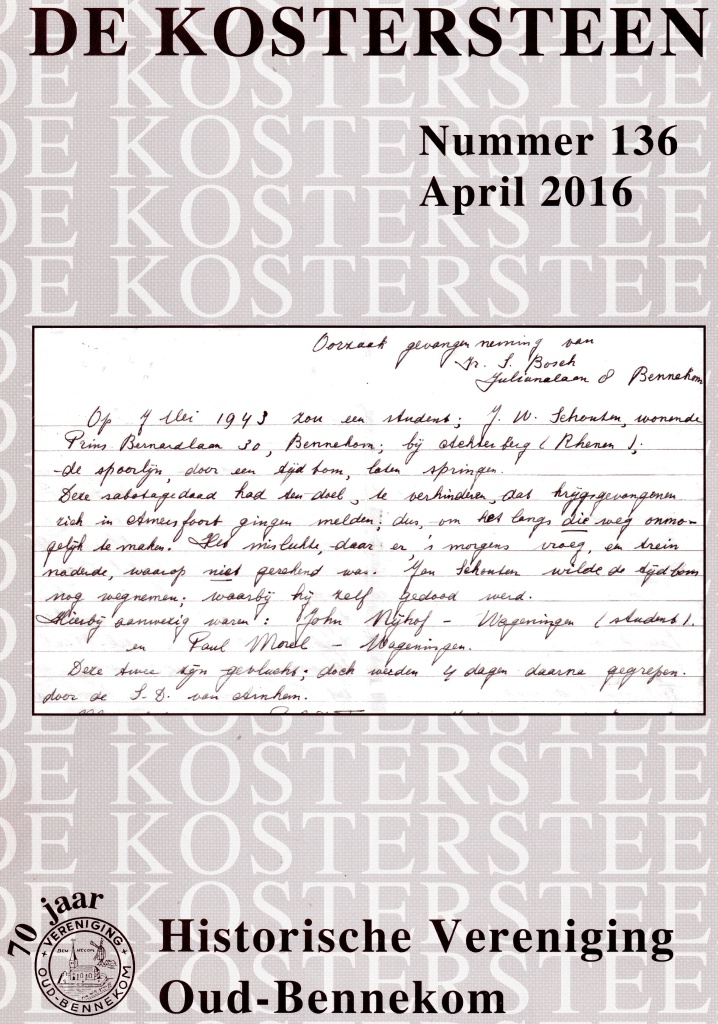 DE KOSTERSTEEN
Nummer 136
April 2016
Oorzaak gevangenneming van
Ir. S. Bosch
Julianalaan 8 Bennekom
Op 7 Mei 1943 zou een student; J. W. Schouten, wonende
Prins Bernardlaan 30, Bennekom; bij Achterberg (Rhenen);
de spoorlijn, door een tijdbom, laten springen.
Deze sabotagedaad had ten doel, te verhinderen, dat krijgsgevangenen
zich in Amersfoort gingen melden; dus, om het langs die weg onmo-
gelijk te maken. Het mislukte, daar er, 's morgens vroeg, een trein
naderde, waarop niet gerekend was. Jan Schouten wilde de tijdbom
nog wegnemen; waarbij hij zelf gedood werd.
Hierbij aanwezig waren: John Nijhof - Wageningen (student).
en Paul Morel - Wageningen.
Deze twee zijn gevlucht; doch werden 4 dagen daarna gegrepen.
door de S.D. van Arnhem.
70 jaar
VERENIGING
BENNEKOM
OUD-BENNEKOM
Historische Vereniging
Oud-Bennekom